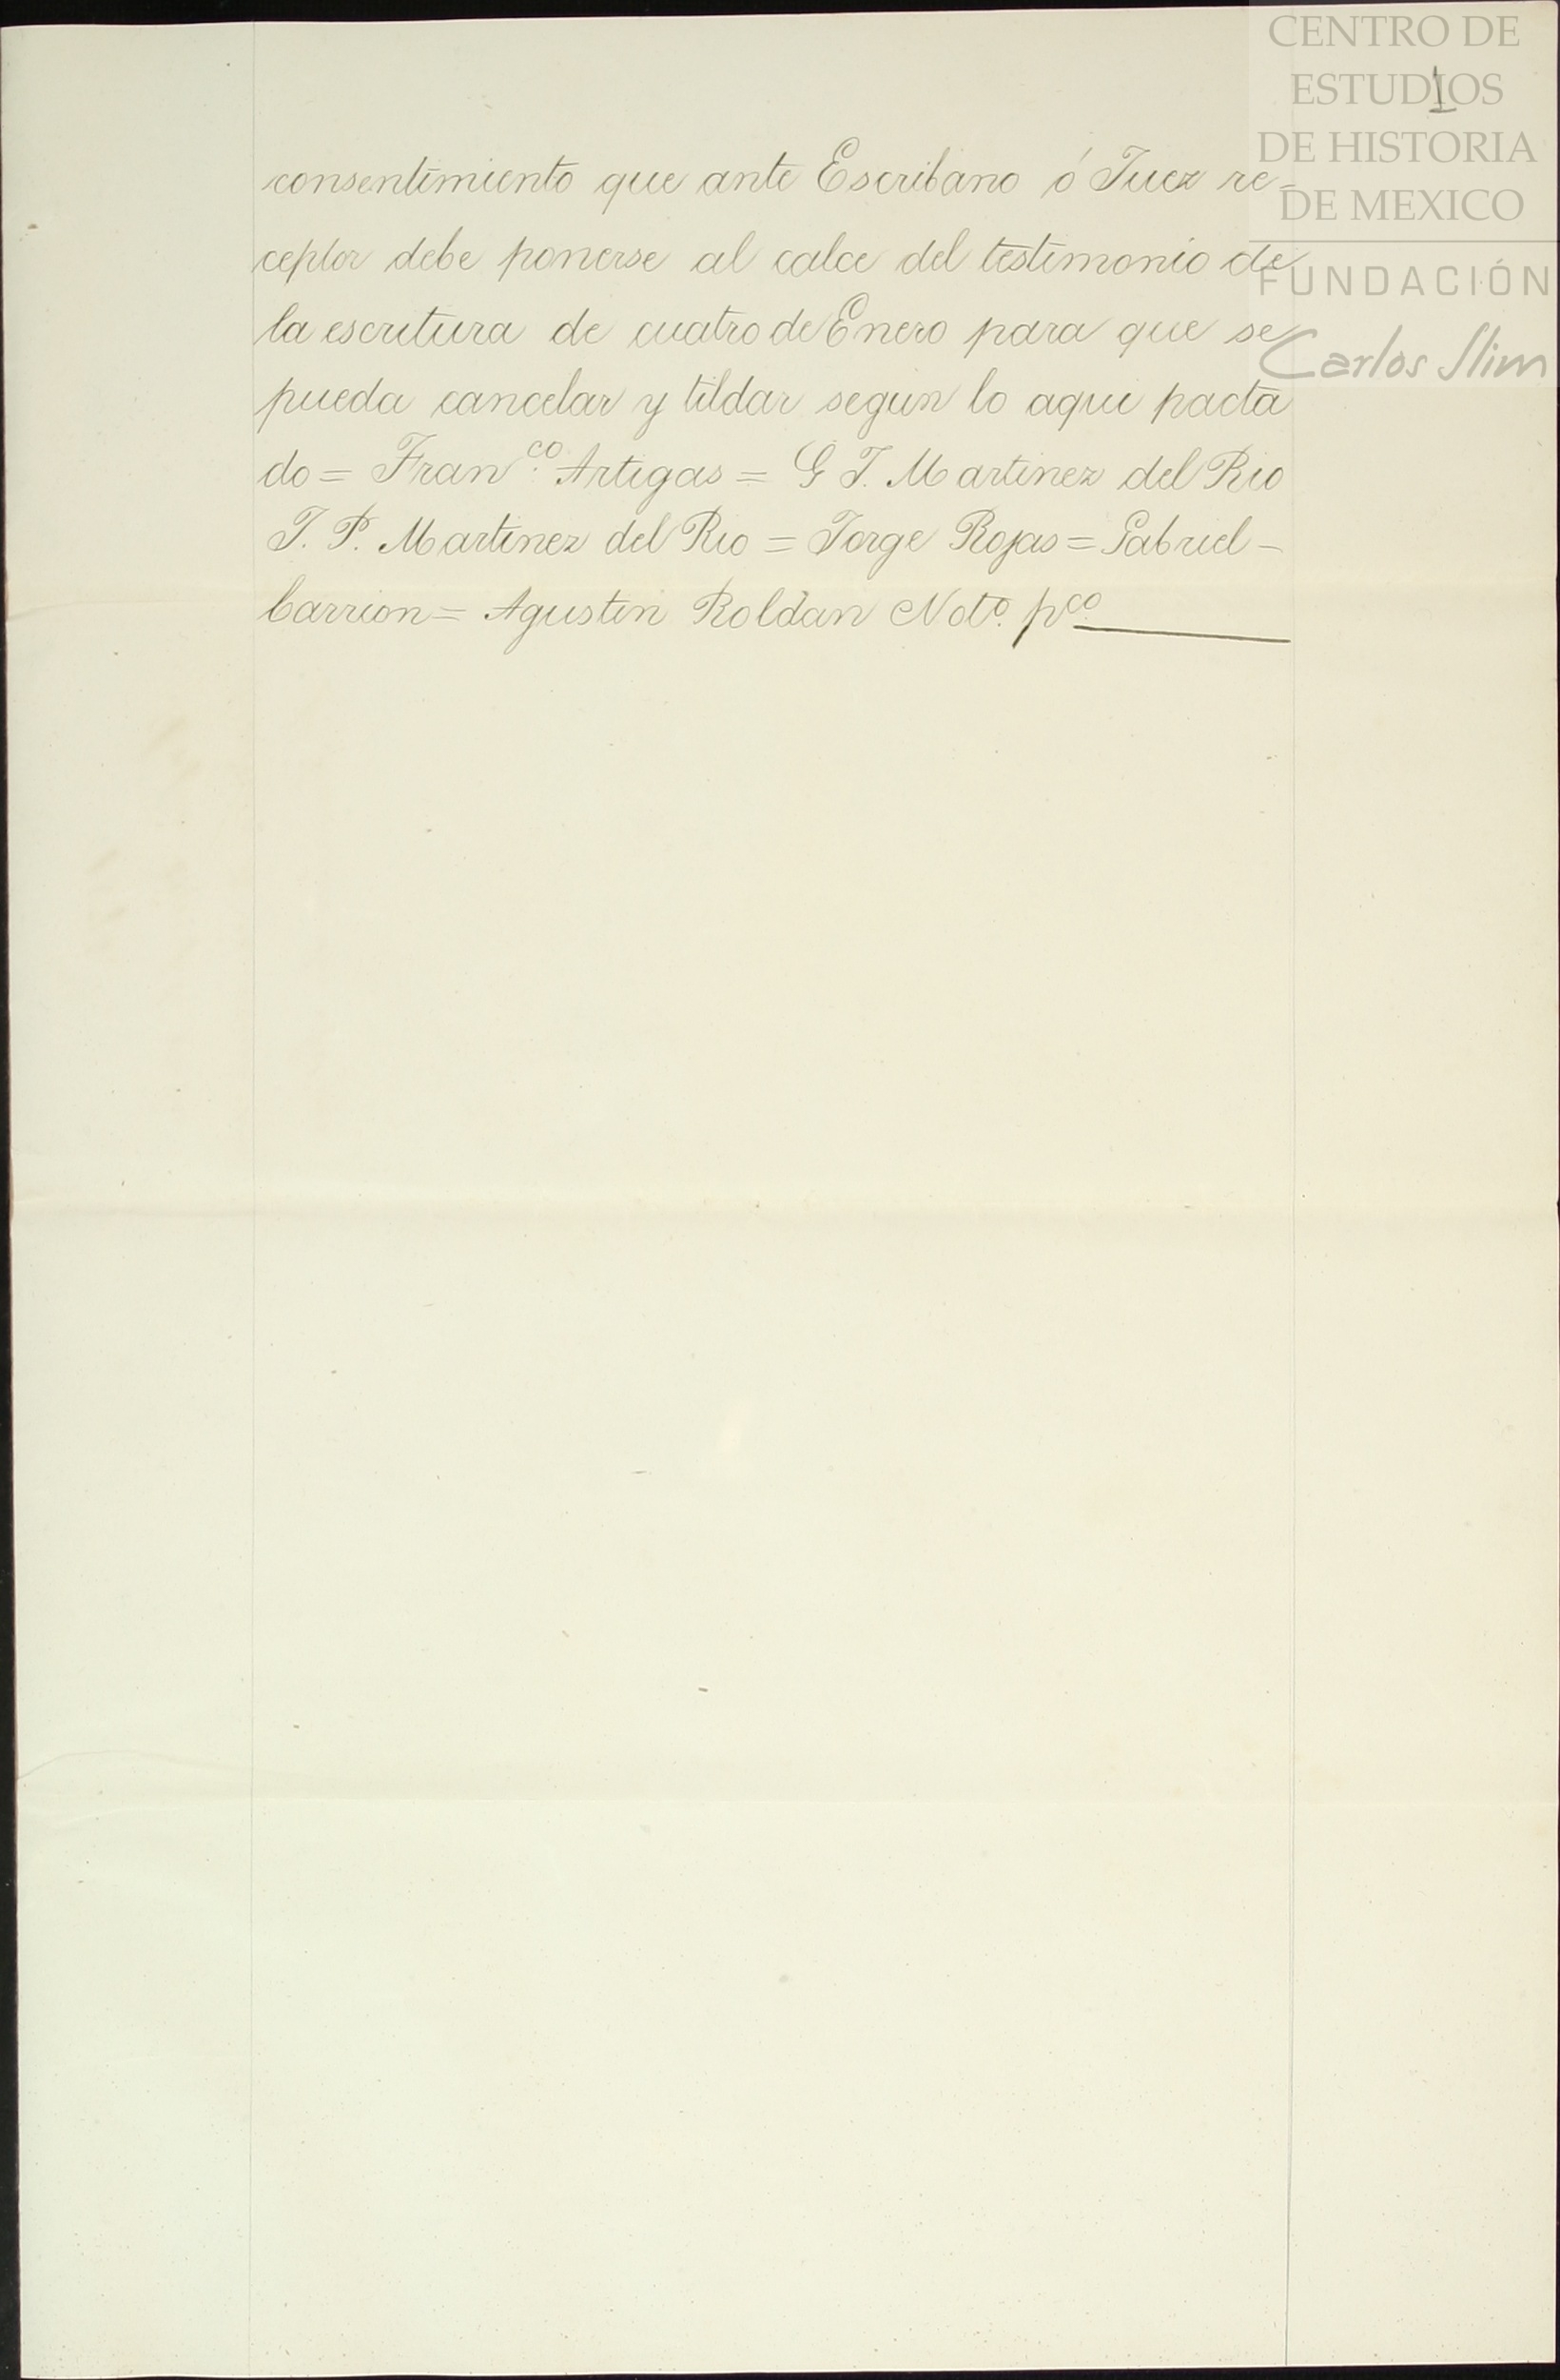 CENTRO DE
ESTUDIOS
DE HISTORIA
DE MEXICO
FUNDACIÓN
Carlos Slim
1
consentimiento que ante Escribano ó Juez re-
ceptor debe ponerse al calce del testimonio de
la escritura de cuatro de Enero para que se
pueda cancelar y tildar segun lo aqui pacta
do = Fran.co Artigas = G J. Martinez del Rio
J. P. Martinez del Rio = Jorge Rojas = Gabriel -
barrion = Agustin Roldan Noto. pco.